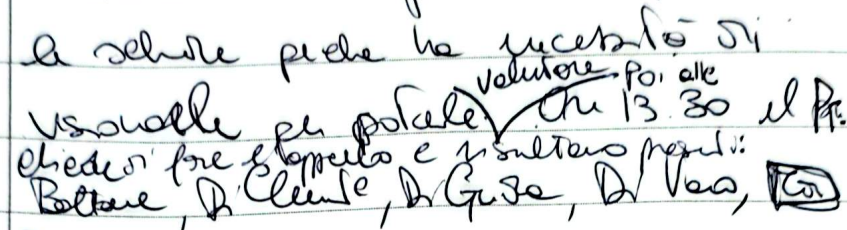 le schede perché ha necessità di
visionarle per poterle valutare. Poi alle
ore 13.30 il Pr.
chiede di fare l'appello e risultano presenti:
Bottone, Di Clemente, Di , Di Vaio,